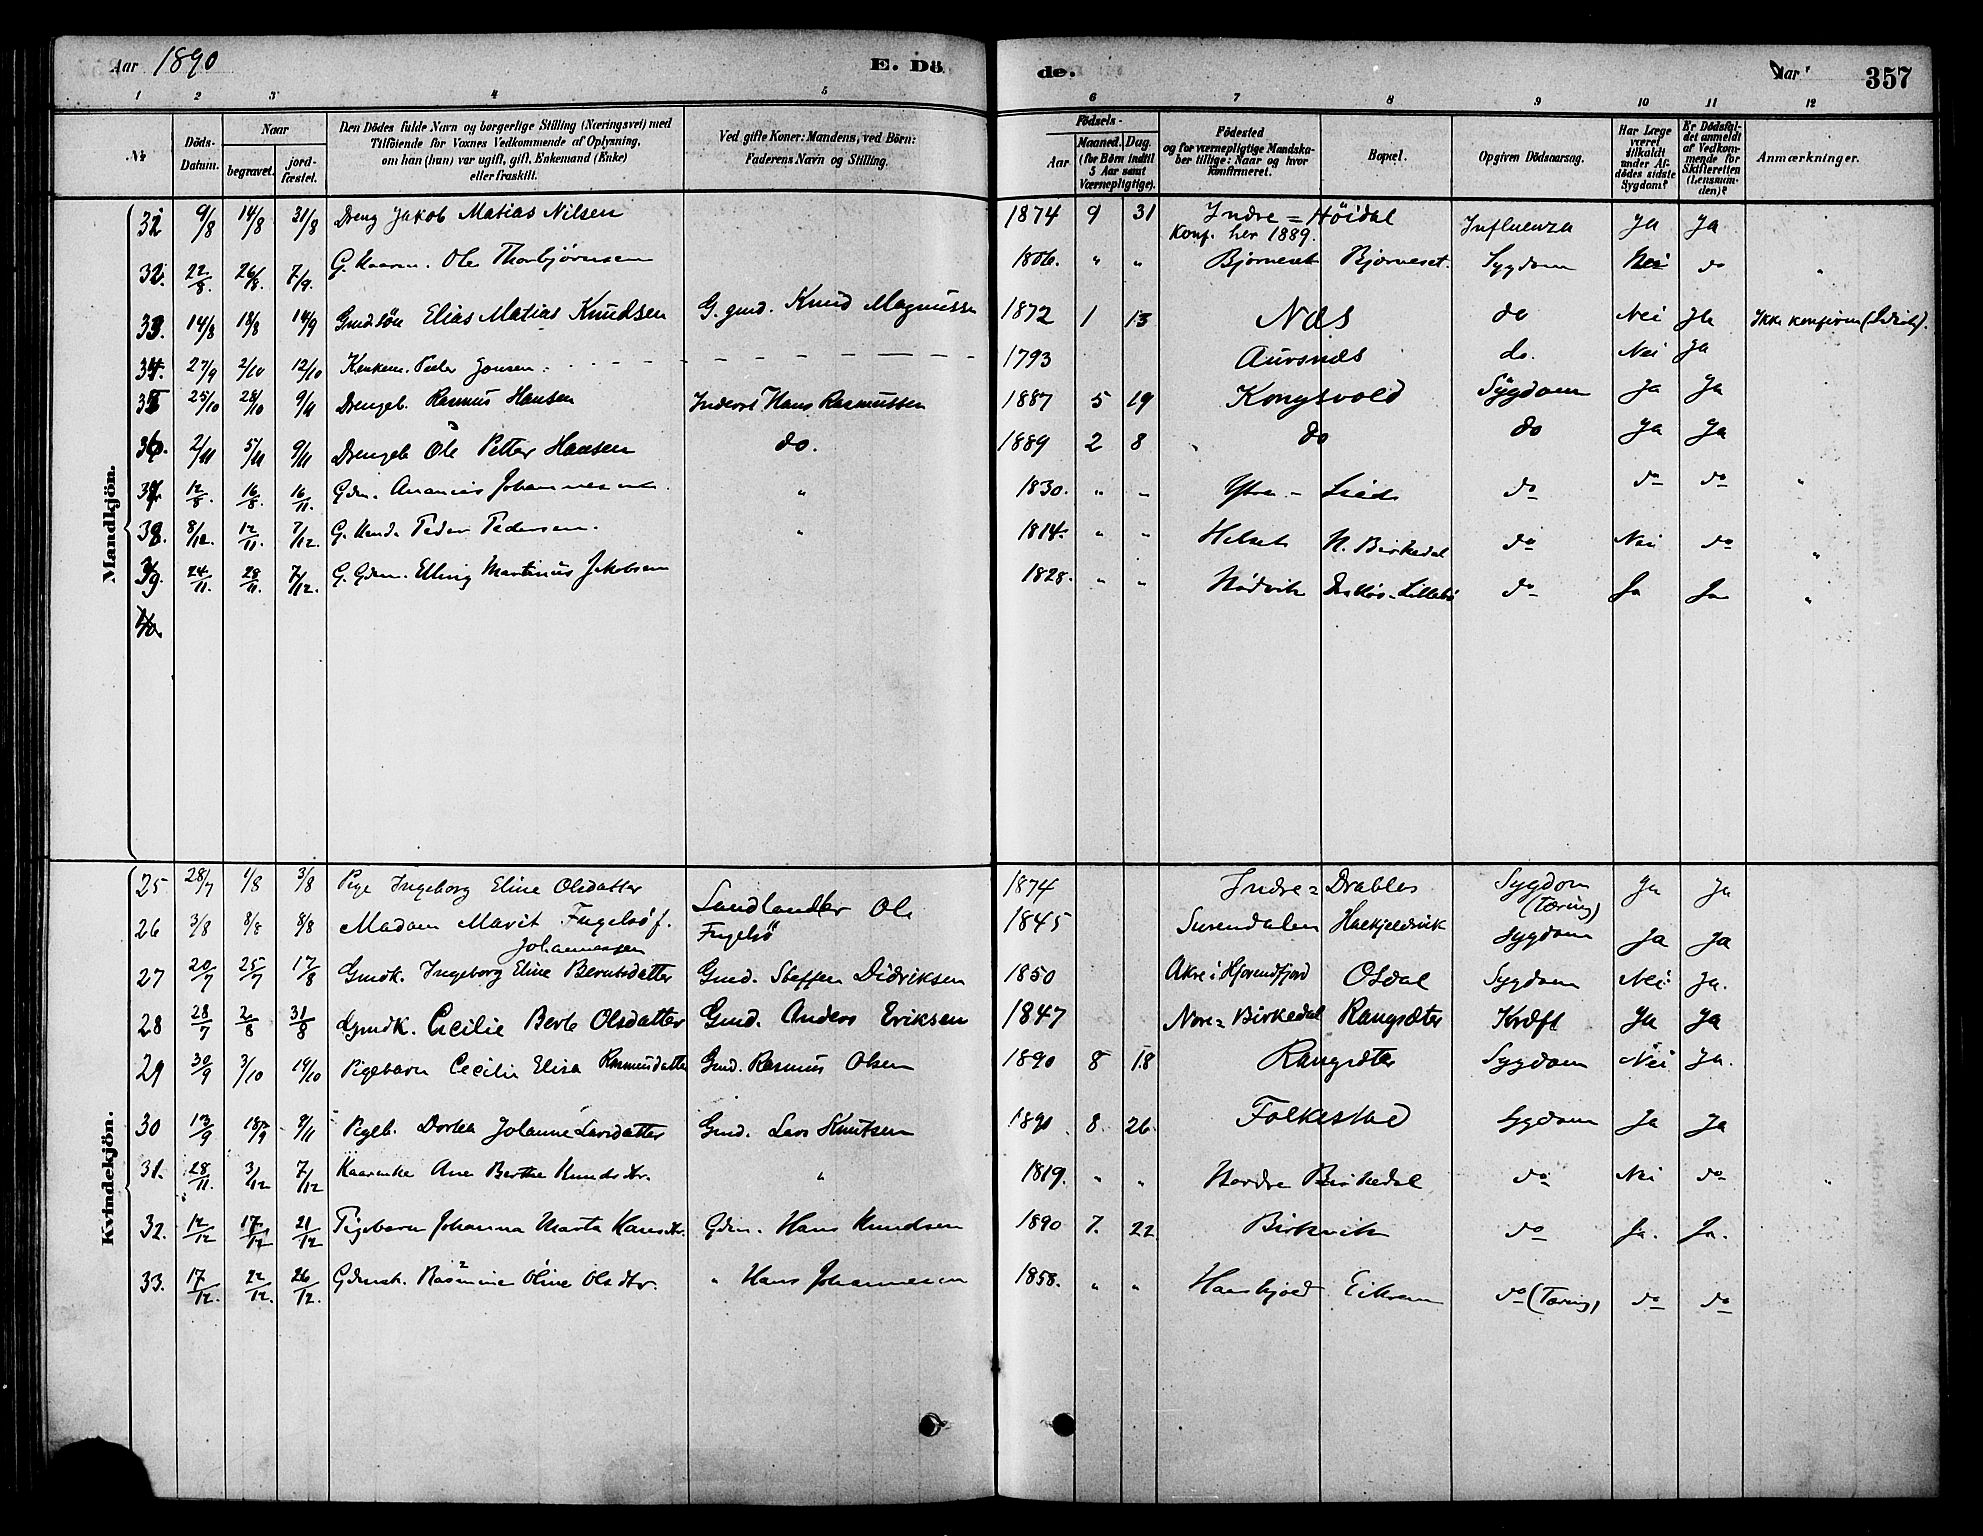 Aar 1890 E. Dö de. Aar 357
1 2 3 4 5 6 7 8 9 10 11 12
No. Döds-Datum. Naar begravet. jordfæstet. Den Dödes fulde Navn og borgerlige Stilling (Næringsvei) med Tilföiende for Voxnes Vedkommende af Oplysning, om han (hun) var ugift, gift, Enkemand (Enke) eller fraskilt. Ved gifte Koner: Mandens, ved Börn: Faderens Navn og Stilling. Födsels- Aar Maaned. Dag. (for Börn indtil 5 Aar samt Værnepligtige). Födested og for værnepligtige Mandskaber tillige: Naar og hvor konfirmeret. Bopæl. Opgiven Dödsaarsag. Har Læge været tilkaldt under Afdödes sidste Sygdom? Er Dödsfaldet anmeldt af Vedkommende for Skifteretten (Lensmanden)? Anmærkninger.
Mandkjön.
9/8 14/8 31/8 Dreng Jakob Matias Nilsen 1874 9 31 Indre = Höidal Influenza Ja Ja
Konf. her 1889.
32. 22/8 26/8 7/9. G. Kaarm. Ole Thorbjörnsen 1806. " " Bjørneset Bjørneset. Sygdom Nei do "
33. 14/8 18/8 14/9 Gmdsön Elias Matias Knudsen G. gmd. Knud Magnussen 1872 1 13 Næs do Nei Ja Ikke konfirm
34. 27/9 2/10 12/10 Peder Jonsen. 1793 Aursnæs do. Nei Ja
35 25/10 28/10 9/11 Drengeb. Rasmus Hansen Inderst Hans Rasmussen 1887 5 19 Kongsvold Sygdom Ja Ja
36. 2/11 5/11 9/11 Drengeb Ole Petter Hansen do. 1889 2 8 do do Ja Ja
37. 12/8. 16/8. 16/11. Gdm. Ananias Johannesen " 1830. " " Ytre - do do do "
38. 8/12. 12/11. 7/12. Peder Pedersen. " 1814. " " Helset N. Birkedal do Nei do "
39. 24/11. 28/11. 7/12. G. Gdm. Elling Martinus Jakobsen 1828. " " Nödvik do Ja Ja "
Kvindekjön.
25 28/7 1/8 3/8 Pige Ingeborg Eline Olsdatter 1874 Indre = Drabløs Sygdom (Tæring) Ja Ja
26 3/8 8/8 8/8 Madam Marit Fugelsö f. Johannessen Landhandler Ole Fugelsö 1845 Surendalen Sygdom Ja Ja
27 20/7 25/7 17/8 Gmdk. Ingeborg Eline Berntsdatter Gmd. Steffen Didriksen 1850 Akre i Hjørendfjord Osdal Sygdom Nei Ja.
28 28/7 2/8 31/8 Gmdk. Cecilie Berte Olsdatter Gmd. Anders Eriksen 1847 Nore = Birkedal Rangsæter Kræft Ja Ja
29 30/9 3/10 19/10 Pigebarn Cecilie Elisa Rasmusdatter Gmd. Rasmus Olsen 1890 8 18 Rangsæter Sygdom Nei Ja.
30 13/9 18/9 9/11 Pigeb. Dortea Johanne Larsdatter Gmd. Lars Knutsen 1890 8. 26. Folkestad Sygdom Ja Ja
31. 28/11. 3/12 7/12 Kaarenke Ane Berthe Knudsdtr. " 1819. " " Nordre Birkedal do Nei do "
32. 12/12 17/12 21/12 Pigebarn Johanna Marta Hansdtr. Gdm. Hans Knudsen 1890 7. 22 Birkvik do Ja. Ja.
33. 17/12. 22/12. 26/12. Gdmk. Rasmine Oline Olsdtr. " Hans Johannesen 1858. " " Eikrem do (Tæring) do do